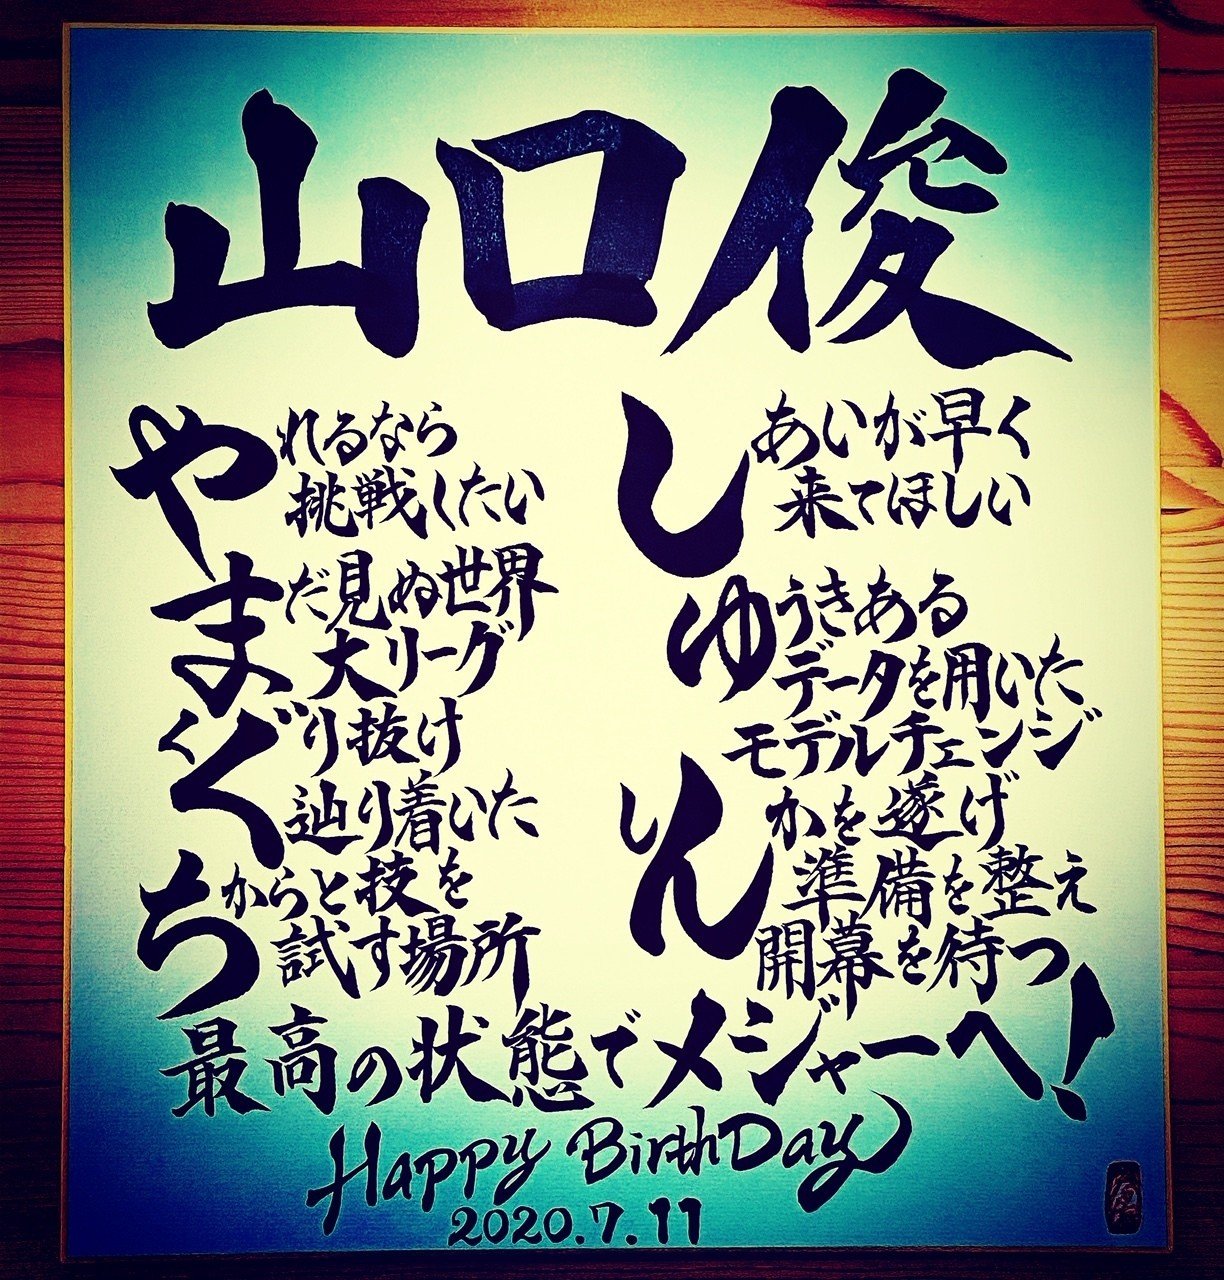 山口俊
やれるなら
挑戦したい
まだ見ぬ世界
大リーグ
くぐり抜け
辿り着いた
ちからと技を
試す場所
しあいが早く
来てほしい
ゆうきある
データを用いた
モデルチェンジ
しんかを遂げ
準備を整え
開幕を待つ
最高の状態でメジャーへ!
Happy BirthDay
2020.7.11